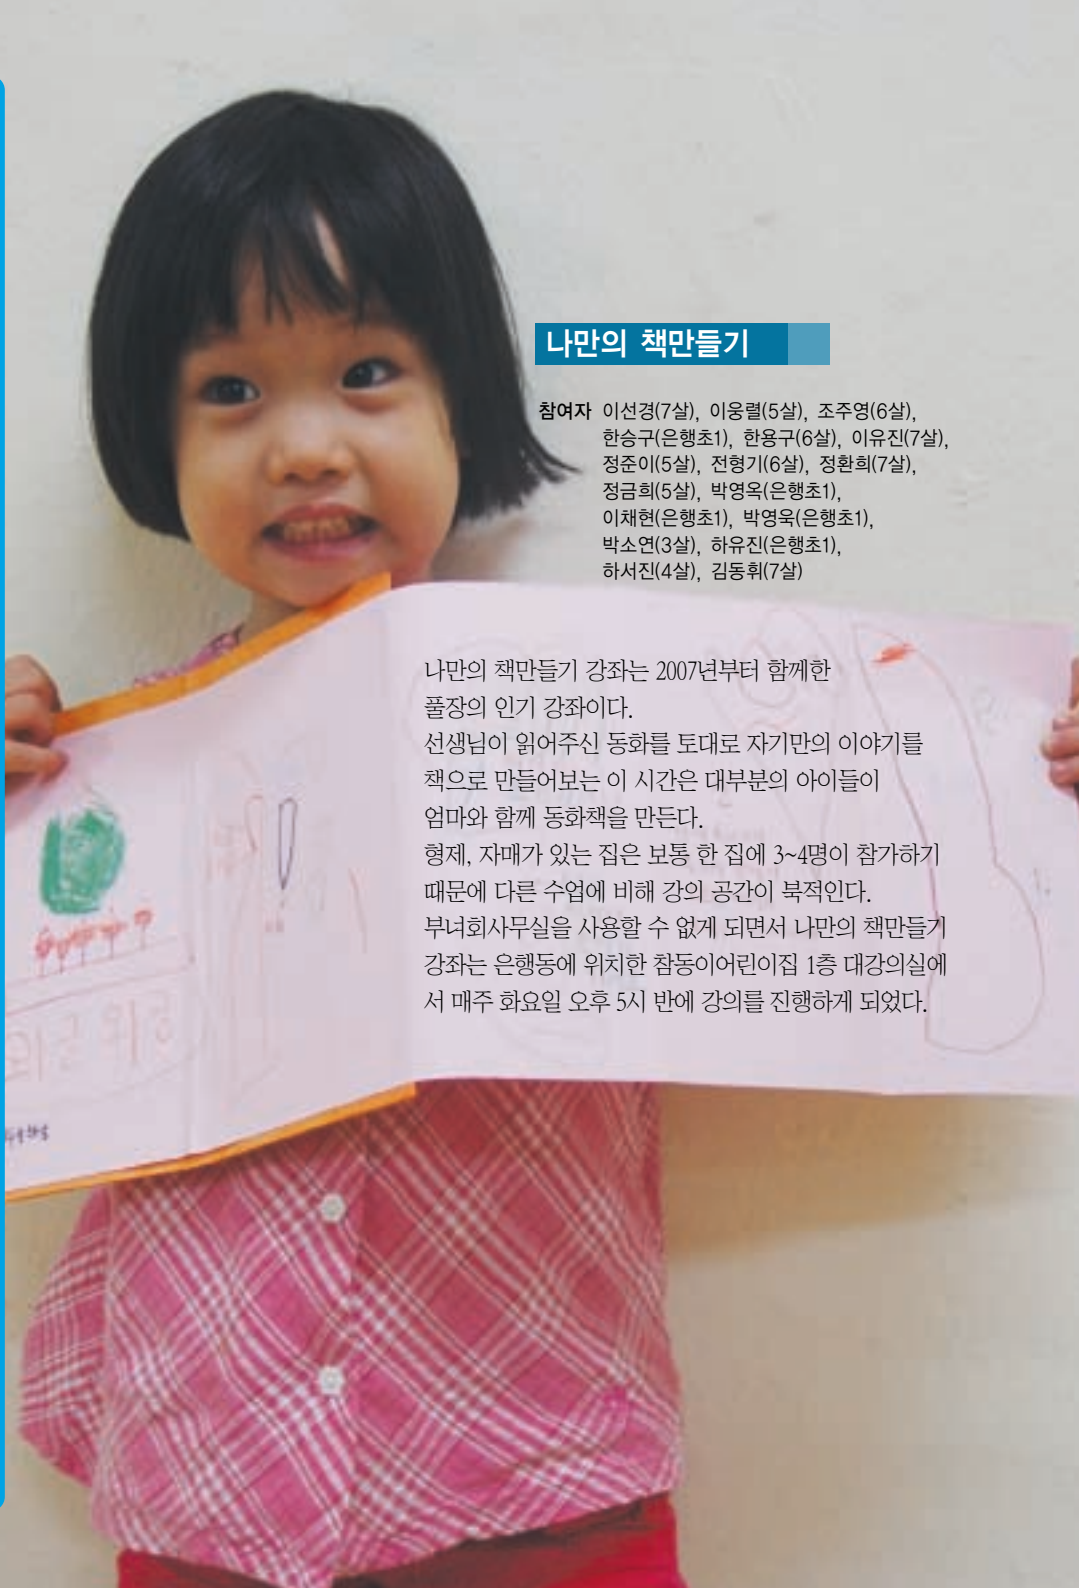 나만의 책만들기
참여자 이선경(7살), 이웅렬(5살), 조주영(6살),
한승구(은행초1), 한용구(6살), 이유진(7살),
정준이(5살), 전형기(6살), 정환희(7살),
정금희(5살), 박영옥(은행초1),
이채현(은행초1), 박영욱(은행초1),
박소연(3살), 하유진(은행초1),
하서진(4살), 김동휘(7살)
나만의 책만들기 강좌는 2007년부터 함께한
풀장의 인기 강좌이다.
선생님이 읽어주신 동화를 토대로 자기만의 이야기를
책으로 만들어보는 이 시간은 대부분의 아이들이
엄마와 함께 동화책을 만든다.
형제, 자매가 있는 집은 보통 한 집에 3~4명이 참가하기
때문에 다른 수업에 비해 강의 공간이 북적인다.
부녀회사무실을 사용할 수 없게 되면서 나만의 책만들기
강좌는 은행동에 위치한 참동이어린이집 1층 대강의실에
서 매주 화요일 오후 5시 반에 강의를 진행하게 되었다.